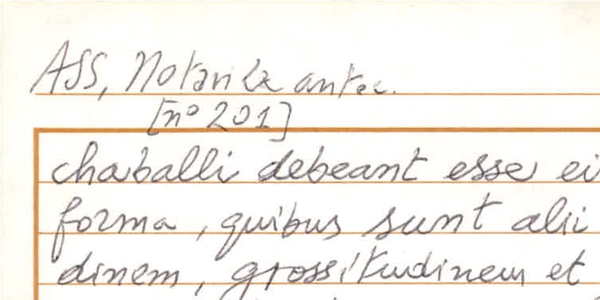 ASS, Notarile antec.
[nº 201]
chaballi debeant esse ei
forma, quibus sunt alii
dinem, grossitudinem et